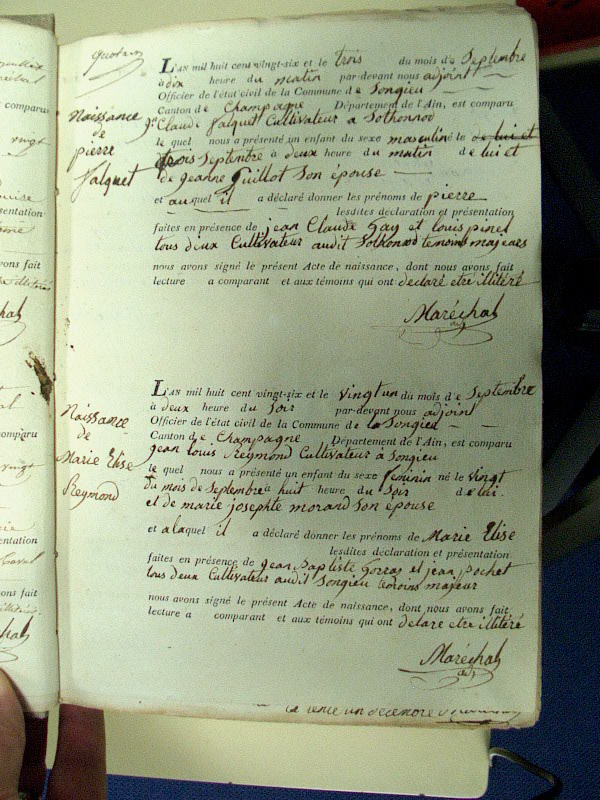 L'AN mil huit cent vingt-six et le trois du mois de Septembre
à dix heure du matin par-devant nous adjoint
Officier de l'état civil de la Commune de Songieu
Canton de Champagne Département de l'Ain, est comparu
Naissance
de
pierre
falquet
Claude falquet Cultivateur a Sothonnod
le quel nous a présenté un enfant du sexe masculin né le de lui et
trois Septembre à deux heure du matin de lui et
de jeanne Guillot Son épouse
et auquel il a déclaré donner les prénoms de pierre
lesdites déclaration et présentation
faites en présence de jean Claude Gay et louis pinel
tous deux Cultivateur audit Sothonod temoins majeurs
nous avons signé le présent Acte de naissance, dont nous avons fait
lecture a comparant et aux témoins qui ont declaré etre illitéré
Maréchal
adj
L'AN mil huit cent vingt-six et le vingt un du mois de Septembre
à deux heure du Soir par-devant nous adjoint
Officier de l'état civil de la Commune de la Songieu
Canton de Champagne Département de l'Ain, est comparu
Naissance
de
Marie Elise
Reymond
jean louis Reymond Cultivateur à Songieu
le quel nous a présenté un enfant du sexe feminin né le vingt
du mois de Septembre à huit heure du Soir de lui
et de marie josephte morand Son épouse
et a laquel il a déclaré donner les prénoms de Marie Elise
lesdites déclaration et présentation
faites en présence de jean baptiste et jean pochet
tous deux Cultivateur audit Songieu temoins majeur
nous avons signé le présent Acte de naissance, dont nous avons fait
lecture a comparant et aux témoins qui ont declare etre illitéré
Maréchal
adj